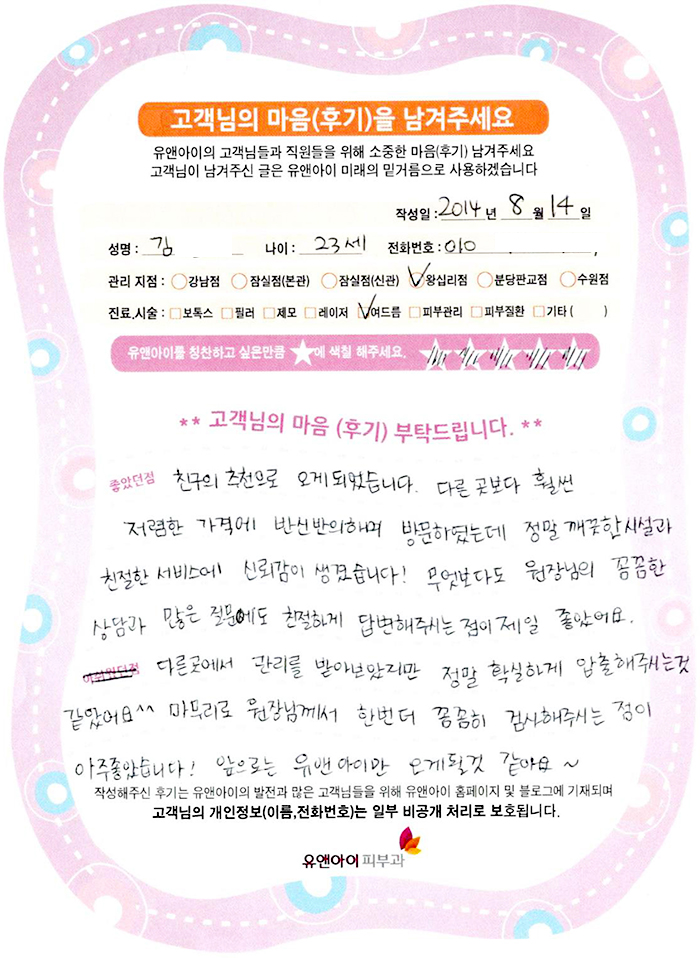 고객님의 마음(후기)을 남겨주세요
유앤아이의 고객님들과 직원들을 위해 소중한 마음(후기) 남겨주세요
고객님이 남겨주신 글은 유앤아이 미래의 밑거름으로 사용하겠습니다
작성일 : 2014 년 8 월 14 일
성명 : 김 나이 : 23세 전화번호 : 010
관리 지점 : 강남점 잠실점(본관) 잠실점(신관) 왕십리점 분당판교점 수원점
진료.시술 : 보톡스 필러 제모 레이저 여드름 피부관리 피부질환 기타 ( )
유앤아이를 칭찬하고 싶은만큼 ★에 색칠 해주세요.
** 고객님의 마음 (후기) 부탁드립니다. **
좋았던점 친구의 추천으로 오게되었습니다. 다른 곳보다 훨씬
저렴한 가격에 반신반의하며 방문하였는데 정말 깨끗한시설과
친절한 서비스에 신뢰감이 생겼습니다! 무엇보다도 원장님의 꼼꼼한
상담과 많은 질문에도 친절하게 답변해주시는 점이 제일 좋았어요.
아쉬웠던점 다른곳에서 관리를 받아보았지만 정말 확실하게 압출해주시는것
같았어요^^ 마무리로 원장님께서 한번더 꼼꼼히 검사해주시는 점이
아주좋았습니다! 앞으로는 유앤아이만 오게될것 같아요~
작성해주신 후기는 유앤아이의 발전과 많은 고객님들을 위해 유앤아이 홈페이지 및 블로그에 기재되며
고객님의 개인정보(이름,전화번호)는 일부 비공개 처리로 보호됩니다.
유앤아이피부과